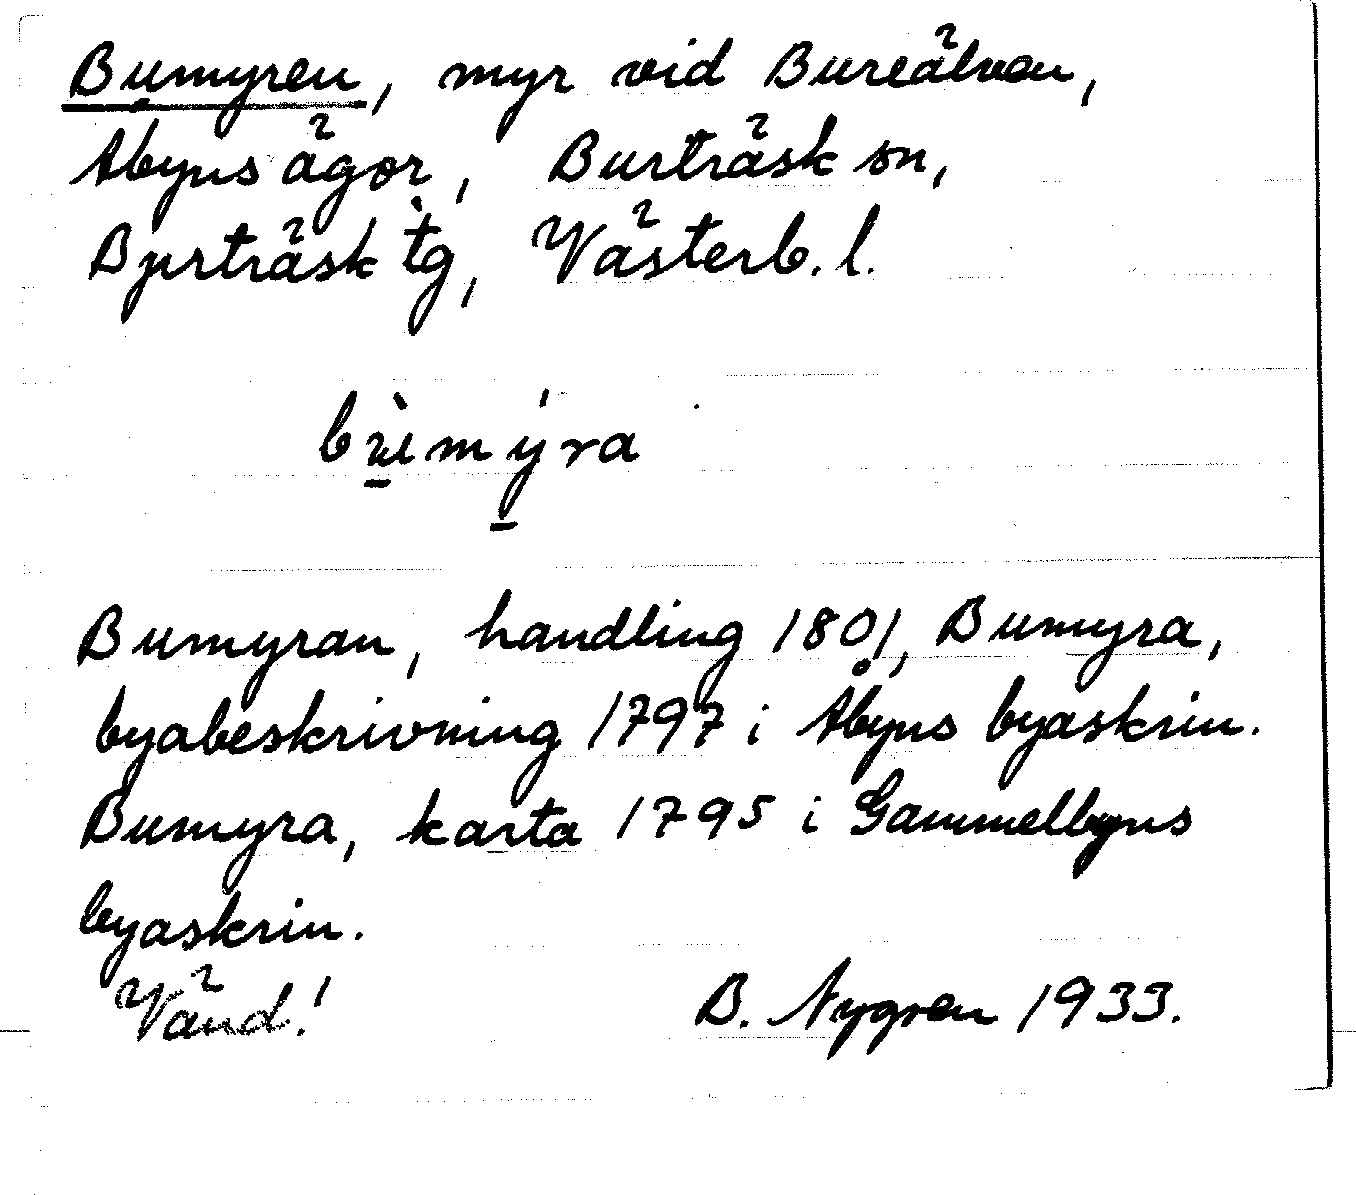 Bumyren, myr vid Bureälven,
Åbyns ägor, Burträsk sn,
Burträsk tg, Västerb. l.
bù̲m ý̲ra
Bumyran, handling 1801, Bumyra,
byabeskrivning 1797 i Åbyns byaskrin.
Bumyra, karta 1795 i Gammelbyns
byaskrin.
Vänd!
B. Nygren 1933.